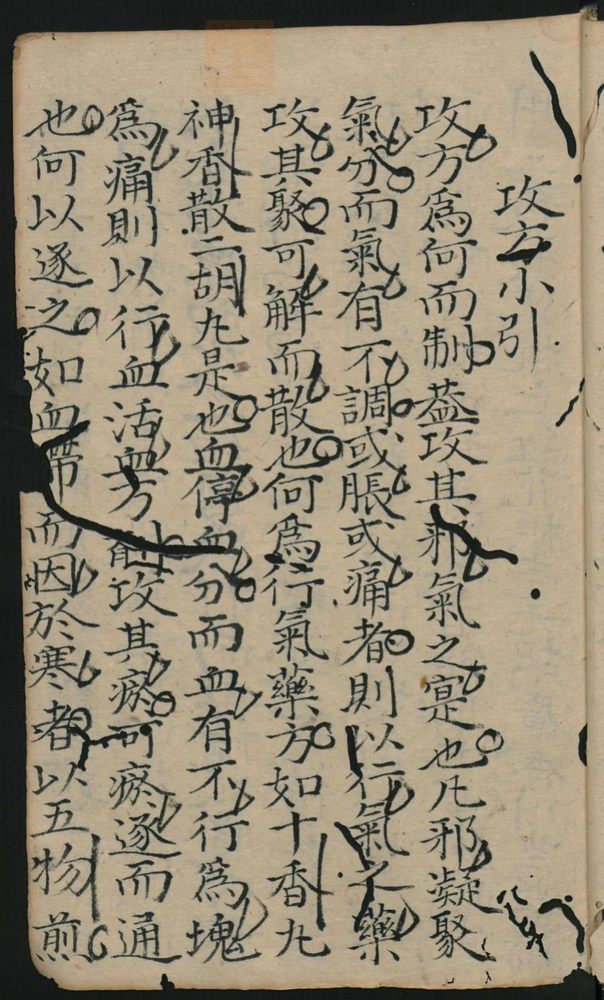 攻方小引
攻方爲何而制盖攻其邪氣之寔也凡邪凝聚
氣分而氣有不調或脹或痛者則以行氣之藥
攻其聚可解而散也何爲行氣藥方如十香丸
神香散二胡丸是也血停血分而血有不行爲塊
爲痛則以行血活血方 攻其瘀可瘀逐而通
也何以逐之如血帶而因於寒者以五物煎